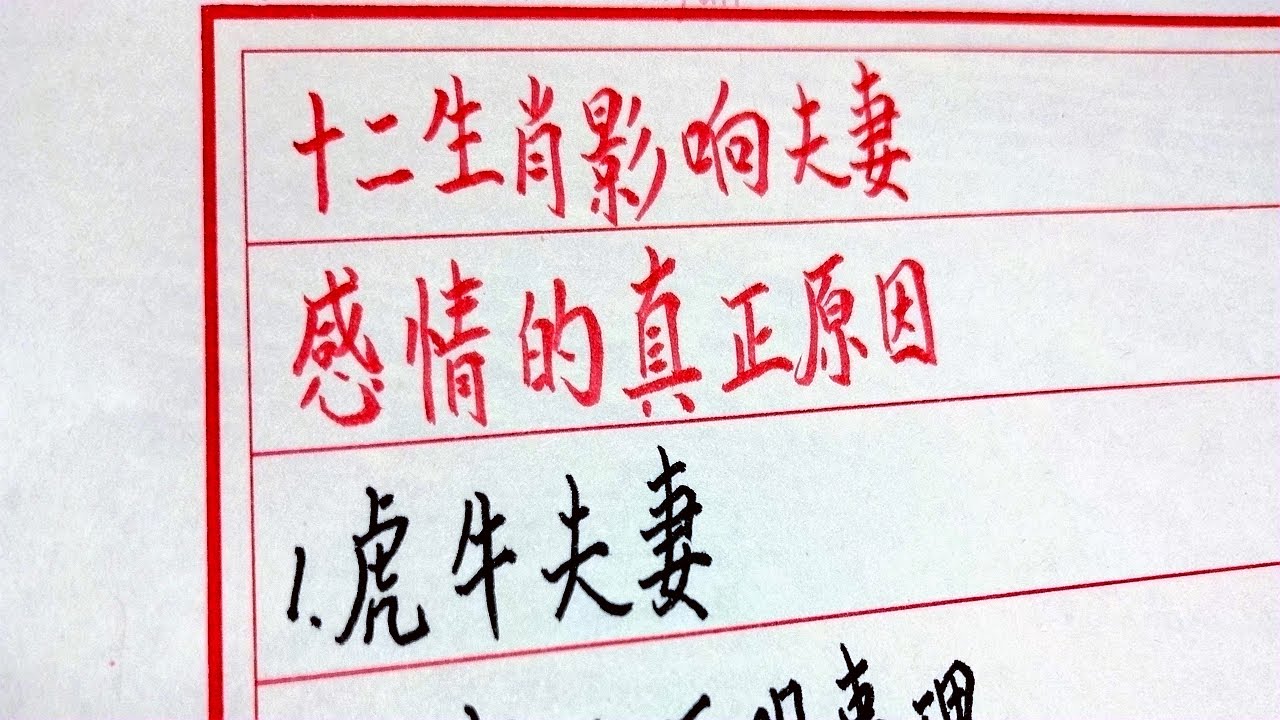 十二生肖影响夫妻
感情的真正原因
1.虎牛夫妻